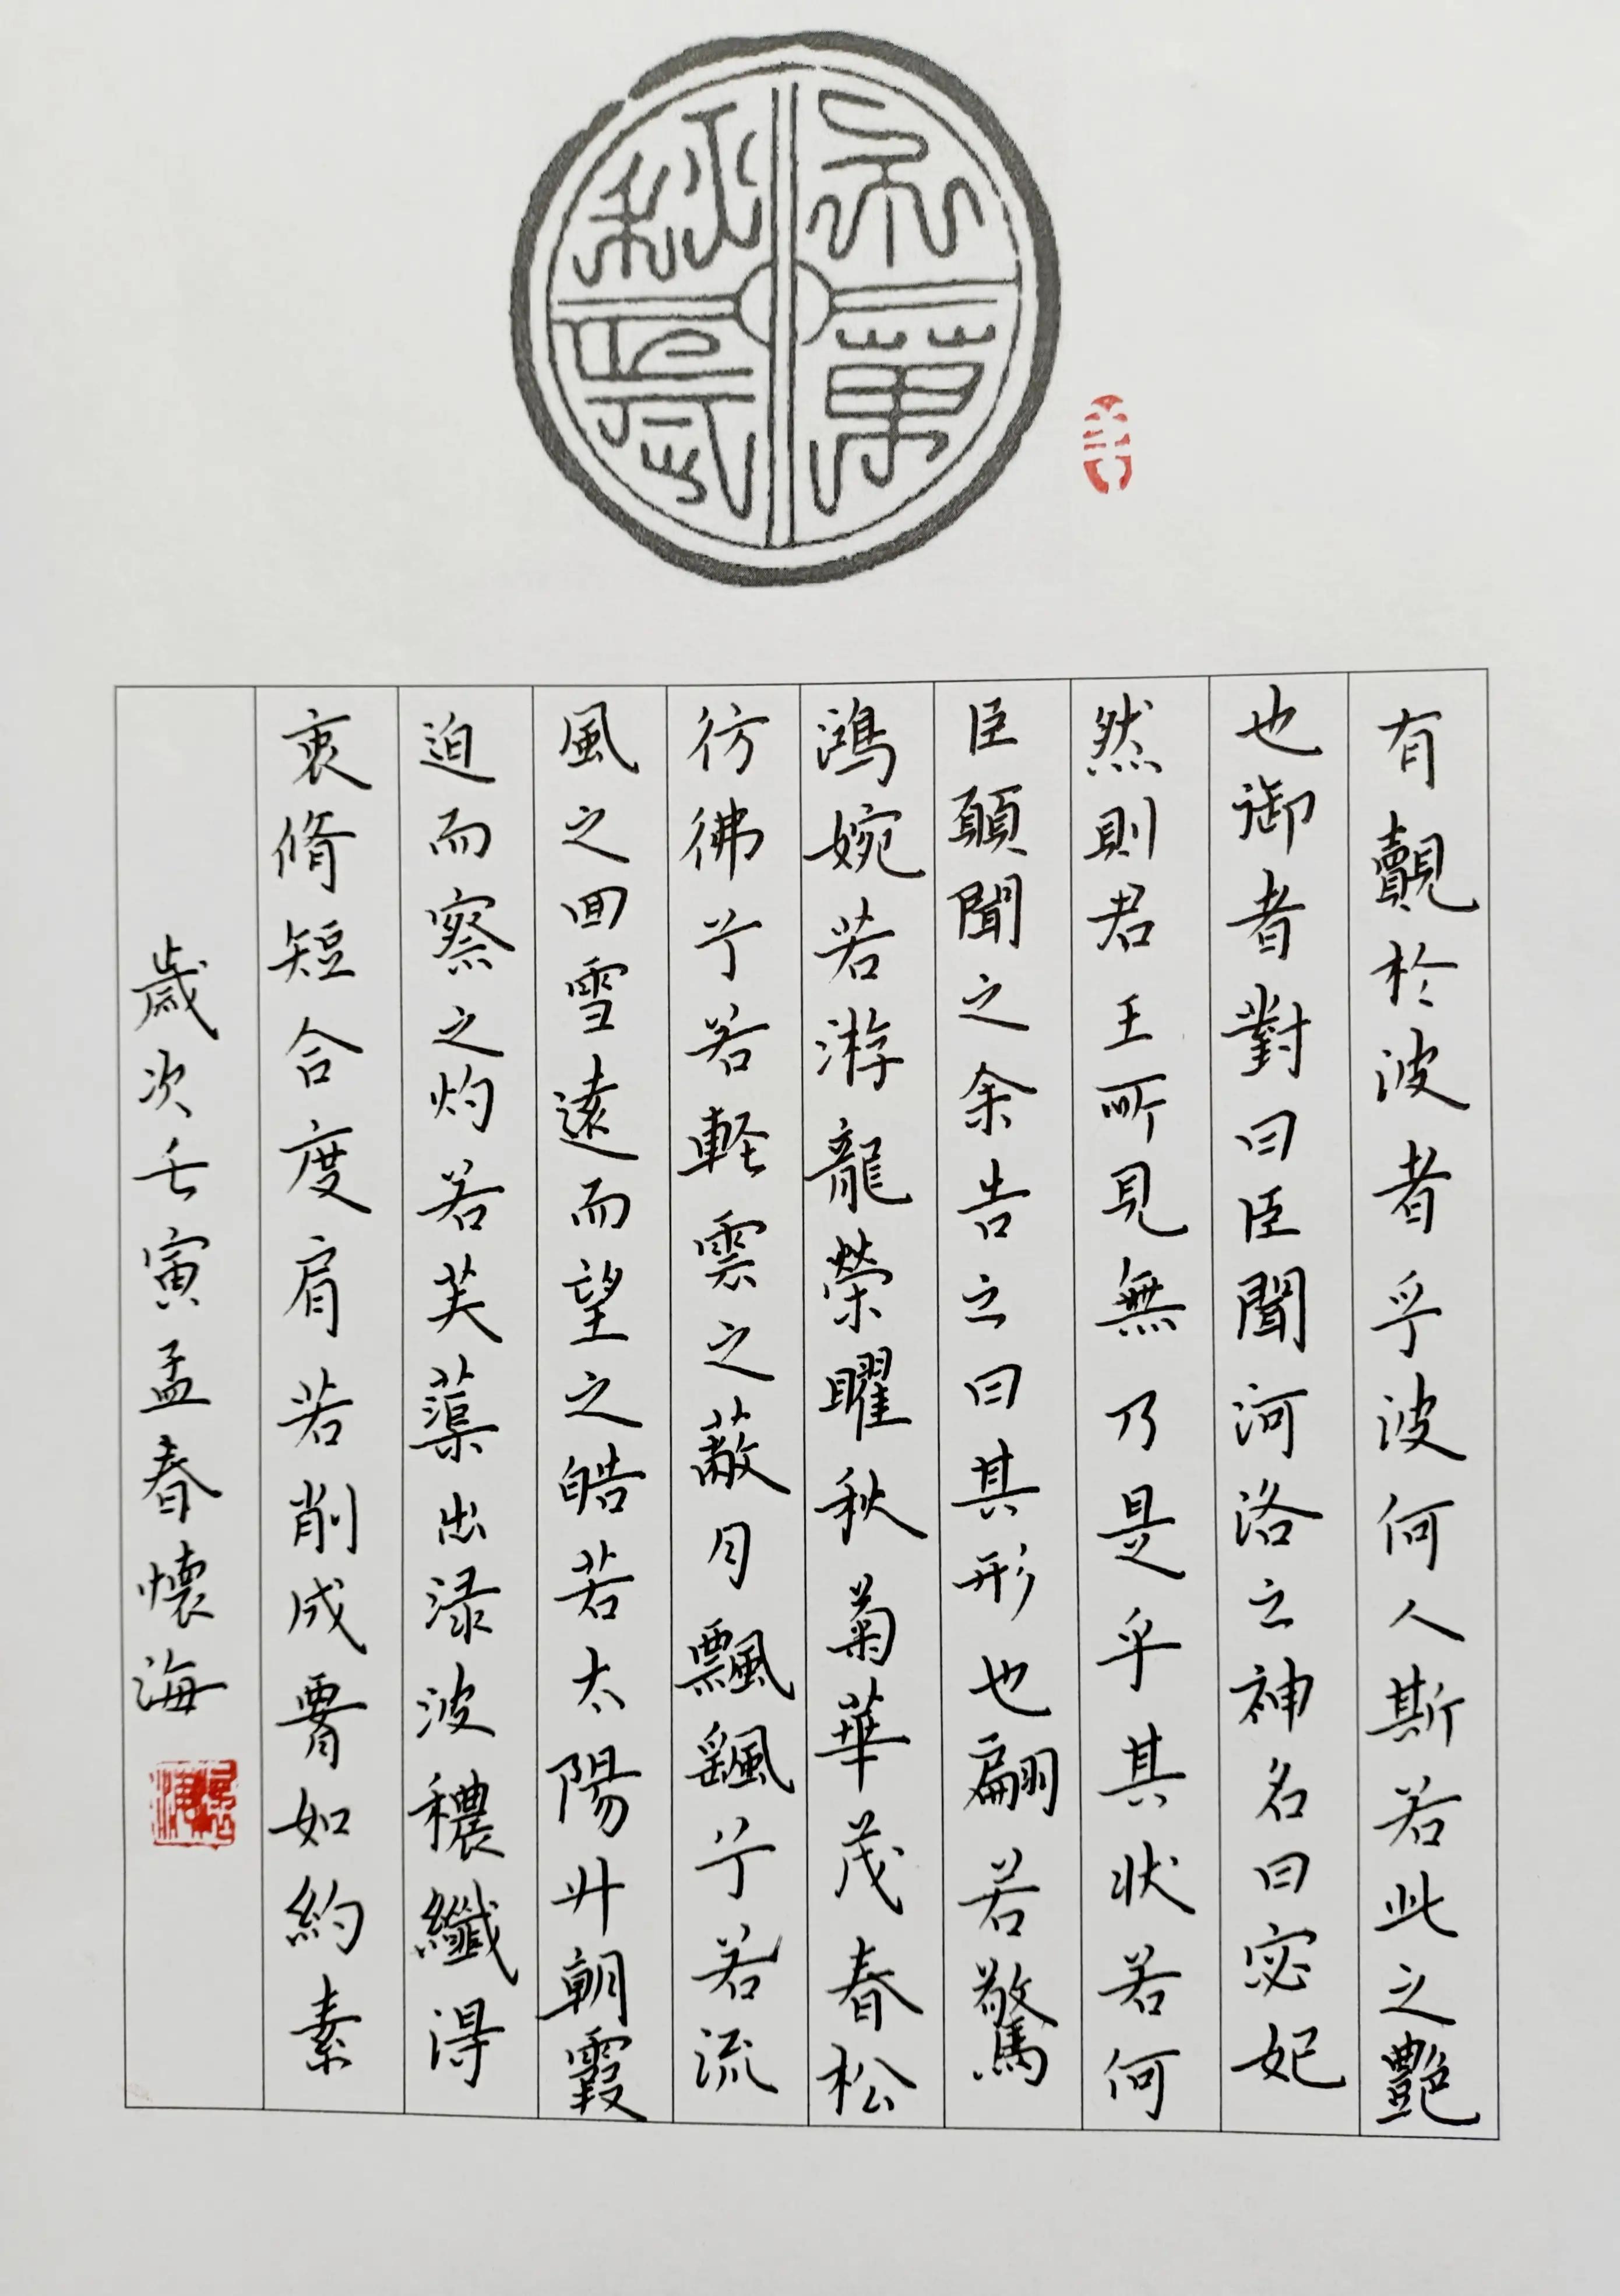 千秋萬歲
有覿於波者乎波何人斯若此之艷
也御者對曰臣聞河洛之神名曰宓妃
然則君王所見無乃是乎其状若何
臣願聞之余告之曰其形也翩若驚
鴻婉若游龍榮曜秋菊華茂春松
彷彿兮若軽雲之蔽月飄颻兮若流
風之回雪遠而望之皓若太陽升朝霞
迫而察之灼若芙蕖出渌波穠纖得
衷脩短合度肩若削成腰如約素
歲次壬寅孟春懷海